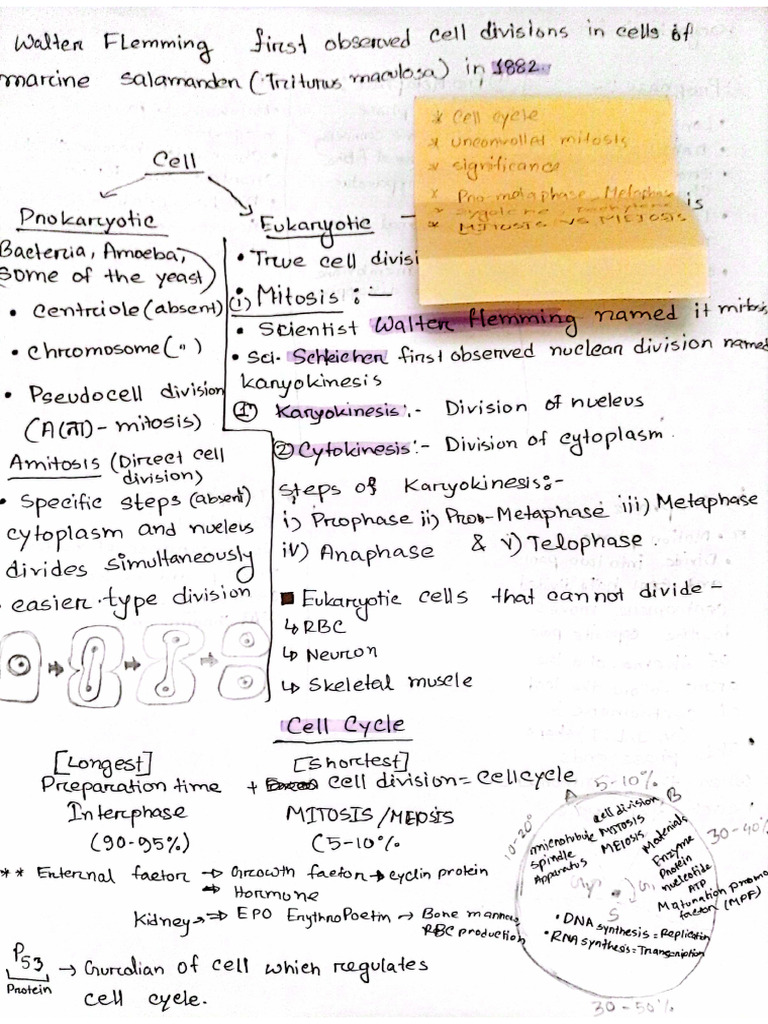 Walter Flemming first observed cell divisions in cells of
marine salamander (Triturus maculosa) in 1882.
* Cell cycle
* uncontrolled mitosis
* significance
* Pro-metaphase, Metaphase
* zygotene pachytene
* MITOSIS VS MEIOSIS
Cell
Prokaryotic
Bacteria, Amoeba,
some of the yeast
• Centriole (absent)
• Chromosome (")
• Pseudocell division
(A(না) - mitosis)
Amitosis (Direct cell
division)
• Specific steps (absent)
cytoplasm and nucleus
divides simultaneously
• easier type division
Eukaryotic — is
• True cell divisi
(i) Mitosis :—
• Scientist Walter Flemming named it mitosis
• Sci. Schleichen first observed nuclear division named
karyokinesis
① Karyokinesis:- Division of nucleus
② Cytokinesis:- Division of cytoplasm.
Steps of Karyokinesis:-
i) Prophase ii) Pro-Metaphase iii) Metaphase
iv) Anaphase & v) Telophase.
■ Eukaryotic cells that cannot divide -
↳ RBC
↳ Neuron
↳ Skeletal muscle
Cell Cycle
[Longest] [Shortest]
Preparation time + cell division = Cell cycle
Interphase MITOSIS/MEIOSIS
(90-95%) (5-10%
** External factor → Growth factor → cyclin protein
→ Hormone
Kidney → EPO ErythroPoetin → Bone marrow
RBC production
P53 → Gurdian of cell which regulates
Protein
cell cycle.
A 5-10% B
10-20%
30-40%
cell division
MITOSIS
MEIOSIS
microtubule
spindle
Apparatus
Materials
Enzyme
Protein
nucleotide
ATP
Maturation promo
factor (MPF)
G₂ G₁
S
• DNA synthesis = Replication
• RNA synthesis = Transcription
30-50%